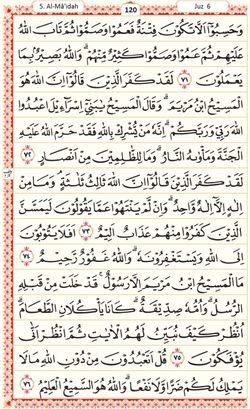 5. Al-Mâ'idah
120
Juz 6
وَحَسِبُوٓا۟ اَلَّا تَكُوْنَ فِتْنَةٌ فَعَمُوْا وَصَمُّوْا ثُمَّ تَابَ اللّٰهُ
عَلَيْهِمْ ثُمَّ عَمُوْا وَصَمُّوْا كَثِيْرٌ مِّنْهُمْ ۗ وَاللّٰهُ بَصِيْرٌۢ بِمَا
يَعْمَلُوْنَ ٧١ لَقَدْ كَفَرَ الَّذِيْنَ قَالُوْٓا اِنَّ اللّٰهَ هُوَ
الْمَسِيْحُ ابْنُ مَرْيَمَ ۗ وَقَالَ الْمَسِيْحُ يٰبَنِيْٓ اِسْرَآءِيْلَ اعْبُدُوا
اللّٰهَ رَبِّيْ وَرَبَّكُمْ ۗ اِنَّهٗ مَنْ يُّشْرِكْ بِاللّٰهِ فَقَدْ حَرَّمَ اللّٰهُ عَلَيْهِ
الْجَنَّةَ وَمَأْوٰىهُ النَّارُ ۗ وَمَا لِلظّٰلِمِيْنَ مِنْ اَنْصَارٍ ٧٢
لَقَدْ كَفَرَ الَّذِيْنَ قَالُوْٓا اِنَّ اللّٰهَ ثَالِثُ ثَلٰثَةٍ ۘ وَمَا مِنْ
اِلٰهٍ اِلَّآ اِلٰهٌ وَّاحِدٌ ۗ وَاِنْ لَّمْ يَنْتَهُوْا عَمَّا يَقُوْلُوْنَ لَيَمَسَّنَّ
الَّذِيْنَ كَفَرُوْا مِنْهُمْ عَذَابٌ اَلِيْمٌ ٧٣ اَفَلَا يَتُوْبُوْنَ
اِلَى اللّٰهِ وَيَسْتَغْفِرُوْنَهٗ ۗ وَاللّٰهُ غَفُوْرٌ رَّحِيْمٌ ٧٤
مَا الْمَسِيْحُ ابْنُ مَرْيَمَ اِلَّا رَسُوْلٌ ۚ قَدْ خَلَتْ مِنْ قَبْلِهِ
الرُّسُلُ ۗ وَاُمُّهٗ صِدِّيْقَةٌ ۗ كَانَا يَأْكُلَانِ الطَّعَامَ ۗ
اُنْظُرْ كَيْفَ نُبَيِّنُ لَهُمُ الْاٰيٰتِ ثُمَّ انْظُرْ اَنّٰى
يُؤْفَكُوْنَ ٧٥ قُلْ اَتَعْبُدُوْنَ مِنْ دُوْنِ اللّٰهِ مَا لَا
يَمْلِكُ لَكُمْ ضَرًّا وَّلَا نَفْعًا ۗ وَاللّٰهُ هُوَ السَّمِيْعُ الْعَلِيْمُ ٧٦